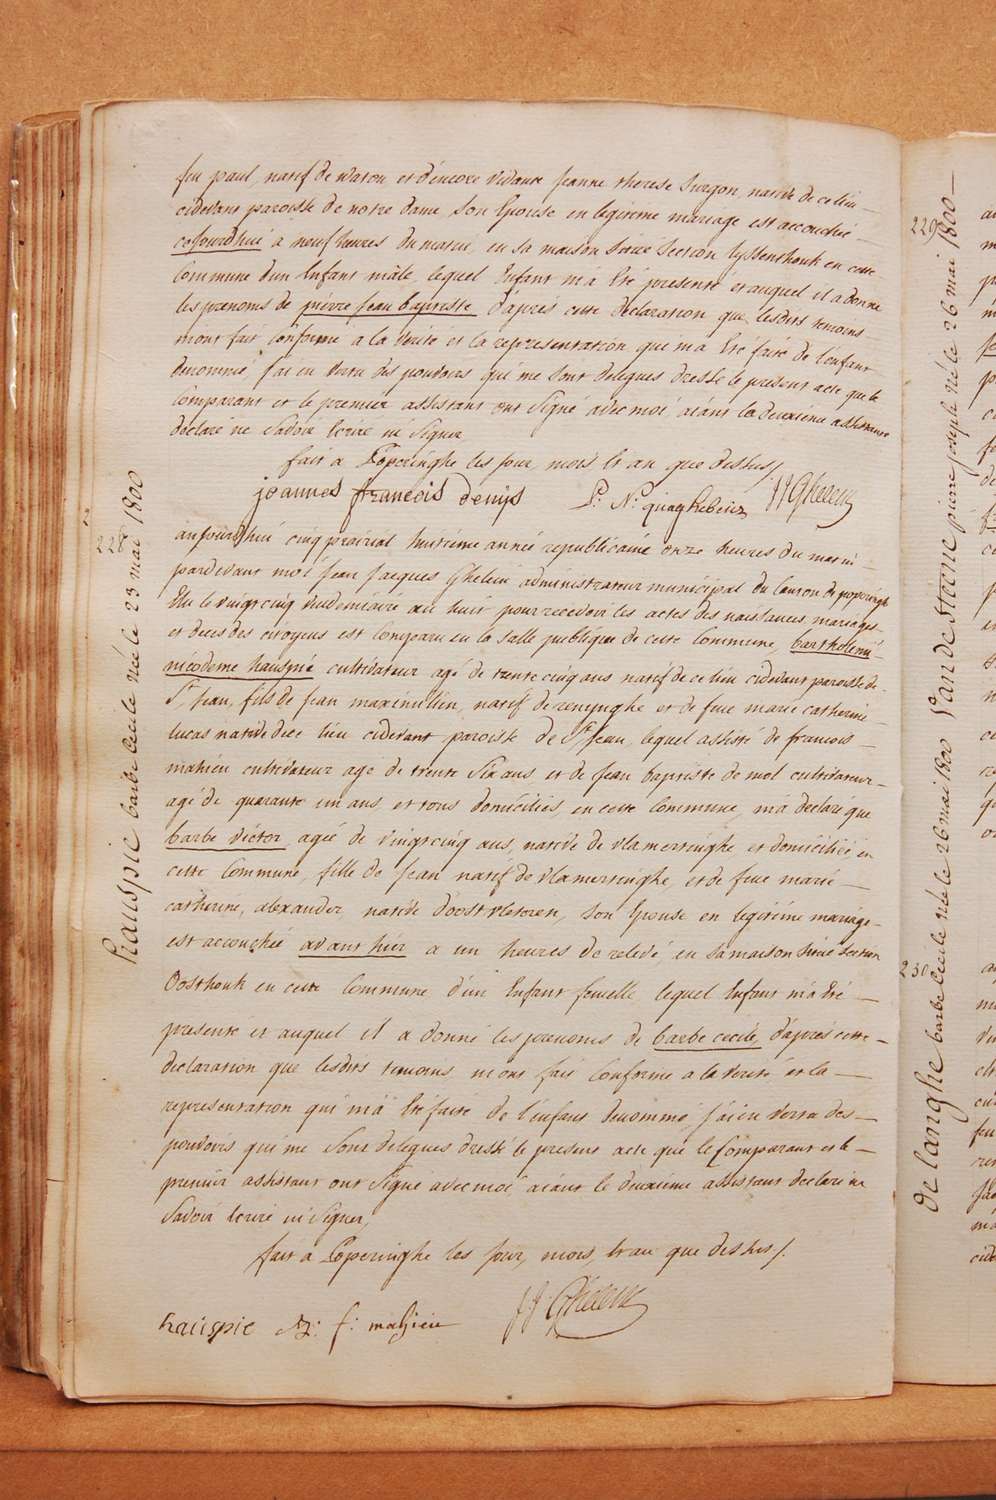 feu paul, natif de watou et d'encore vivante jeanne therese surgon, native de ce lieu
cidevant paroisse de notre dame, son Epouse en legitime mariage est accouchée
cejourdhui à neuf heures du matin, en sa maison située section lyssenthouk en cette
Commune d'un Enfant mâle, lequel Enfant m'a été presenté et auquel il a donné
les prenoms de pierre jean baptiste d'après cette declaration que lesdits temoins
m'ont fait Conforme a la verité et la representation qui m'a été faite de l'enfant
denommé, j'ai en vertu des pouvoirs qui me sont delegues dressé le present acte que le
Comparant et le premier assistant ont signé avec moi aiant la deuxième assistante
declaré ne savoir écrire ni signer
fait a Poperinghe les jour, mois et an que dessus /.
joannes francois denys P: N: quaghebeur JJGhelein
228
aujourdhui cinq prairial huitième année republicaine onze heures du matin
pardevant moi jean jacques Ghelein administrateur municipal du Canton de poperinghe
Elu le vingtcinq vendemiaire an huit pour recevoir les actes des naissances mariages
et deces des citoyens est Comparu en la salle publique de cette Commune, bartholomé
nicodeme hauspie cultivateur agé de trente cinq ans natif de ce lieu cidevant paroisse de
St jean, fils de jean maximilien, natif de renynghe et de feue marie catherine
lucas native de ce lieu cidevant paroisse de St jean, lequel assisté de francois
mahieu cultivateur agé de trente six ans et de jean baptiste de mol cultivateur
agé de quarante un ans, et tous domiciliés, en cette Commune, m'a declaré que
barbe victor, agée de vingtcinq ans, native de vlamertinghe et domiciliée en
cette Commune, fille de jean natif de vlamertinghe, et de feue marie
catherine, alexander, native d'oostvleteren, son Epouse en legitime mariage
est accouchée avant hier a un heures de relevé, en sa maison située section
Oosthouk en cette Commune d'un Enfant femelle lequel Enfant m'a été
presenté et auquel il a donné les prenoms de barbe cecile, d'après cette
declaration que lesdits temoins m'ont fait Conforme a la verité et la
representation qui m'a été faite de l'enfant denommé j'ai en vertu des
pouvoirs qui me sont delegues dressé le present acte que le Comparant et le
premier assistant ont signé avec moi, aiant le deuxième assistant declaré ne
savoir écrire ni signer,
fait à Poperinghe les jour, mois, et an que dessus /.
hauspie f: mahieu JJ Ghelein
hauspie barbe cecile née le 23 mai 1800
229
Van de Steene pierre joseph né le 26 mai 1800
230
de langhe barbe cecile née le 26 mai 1800